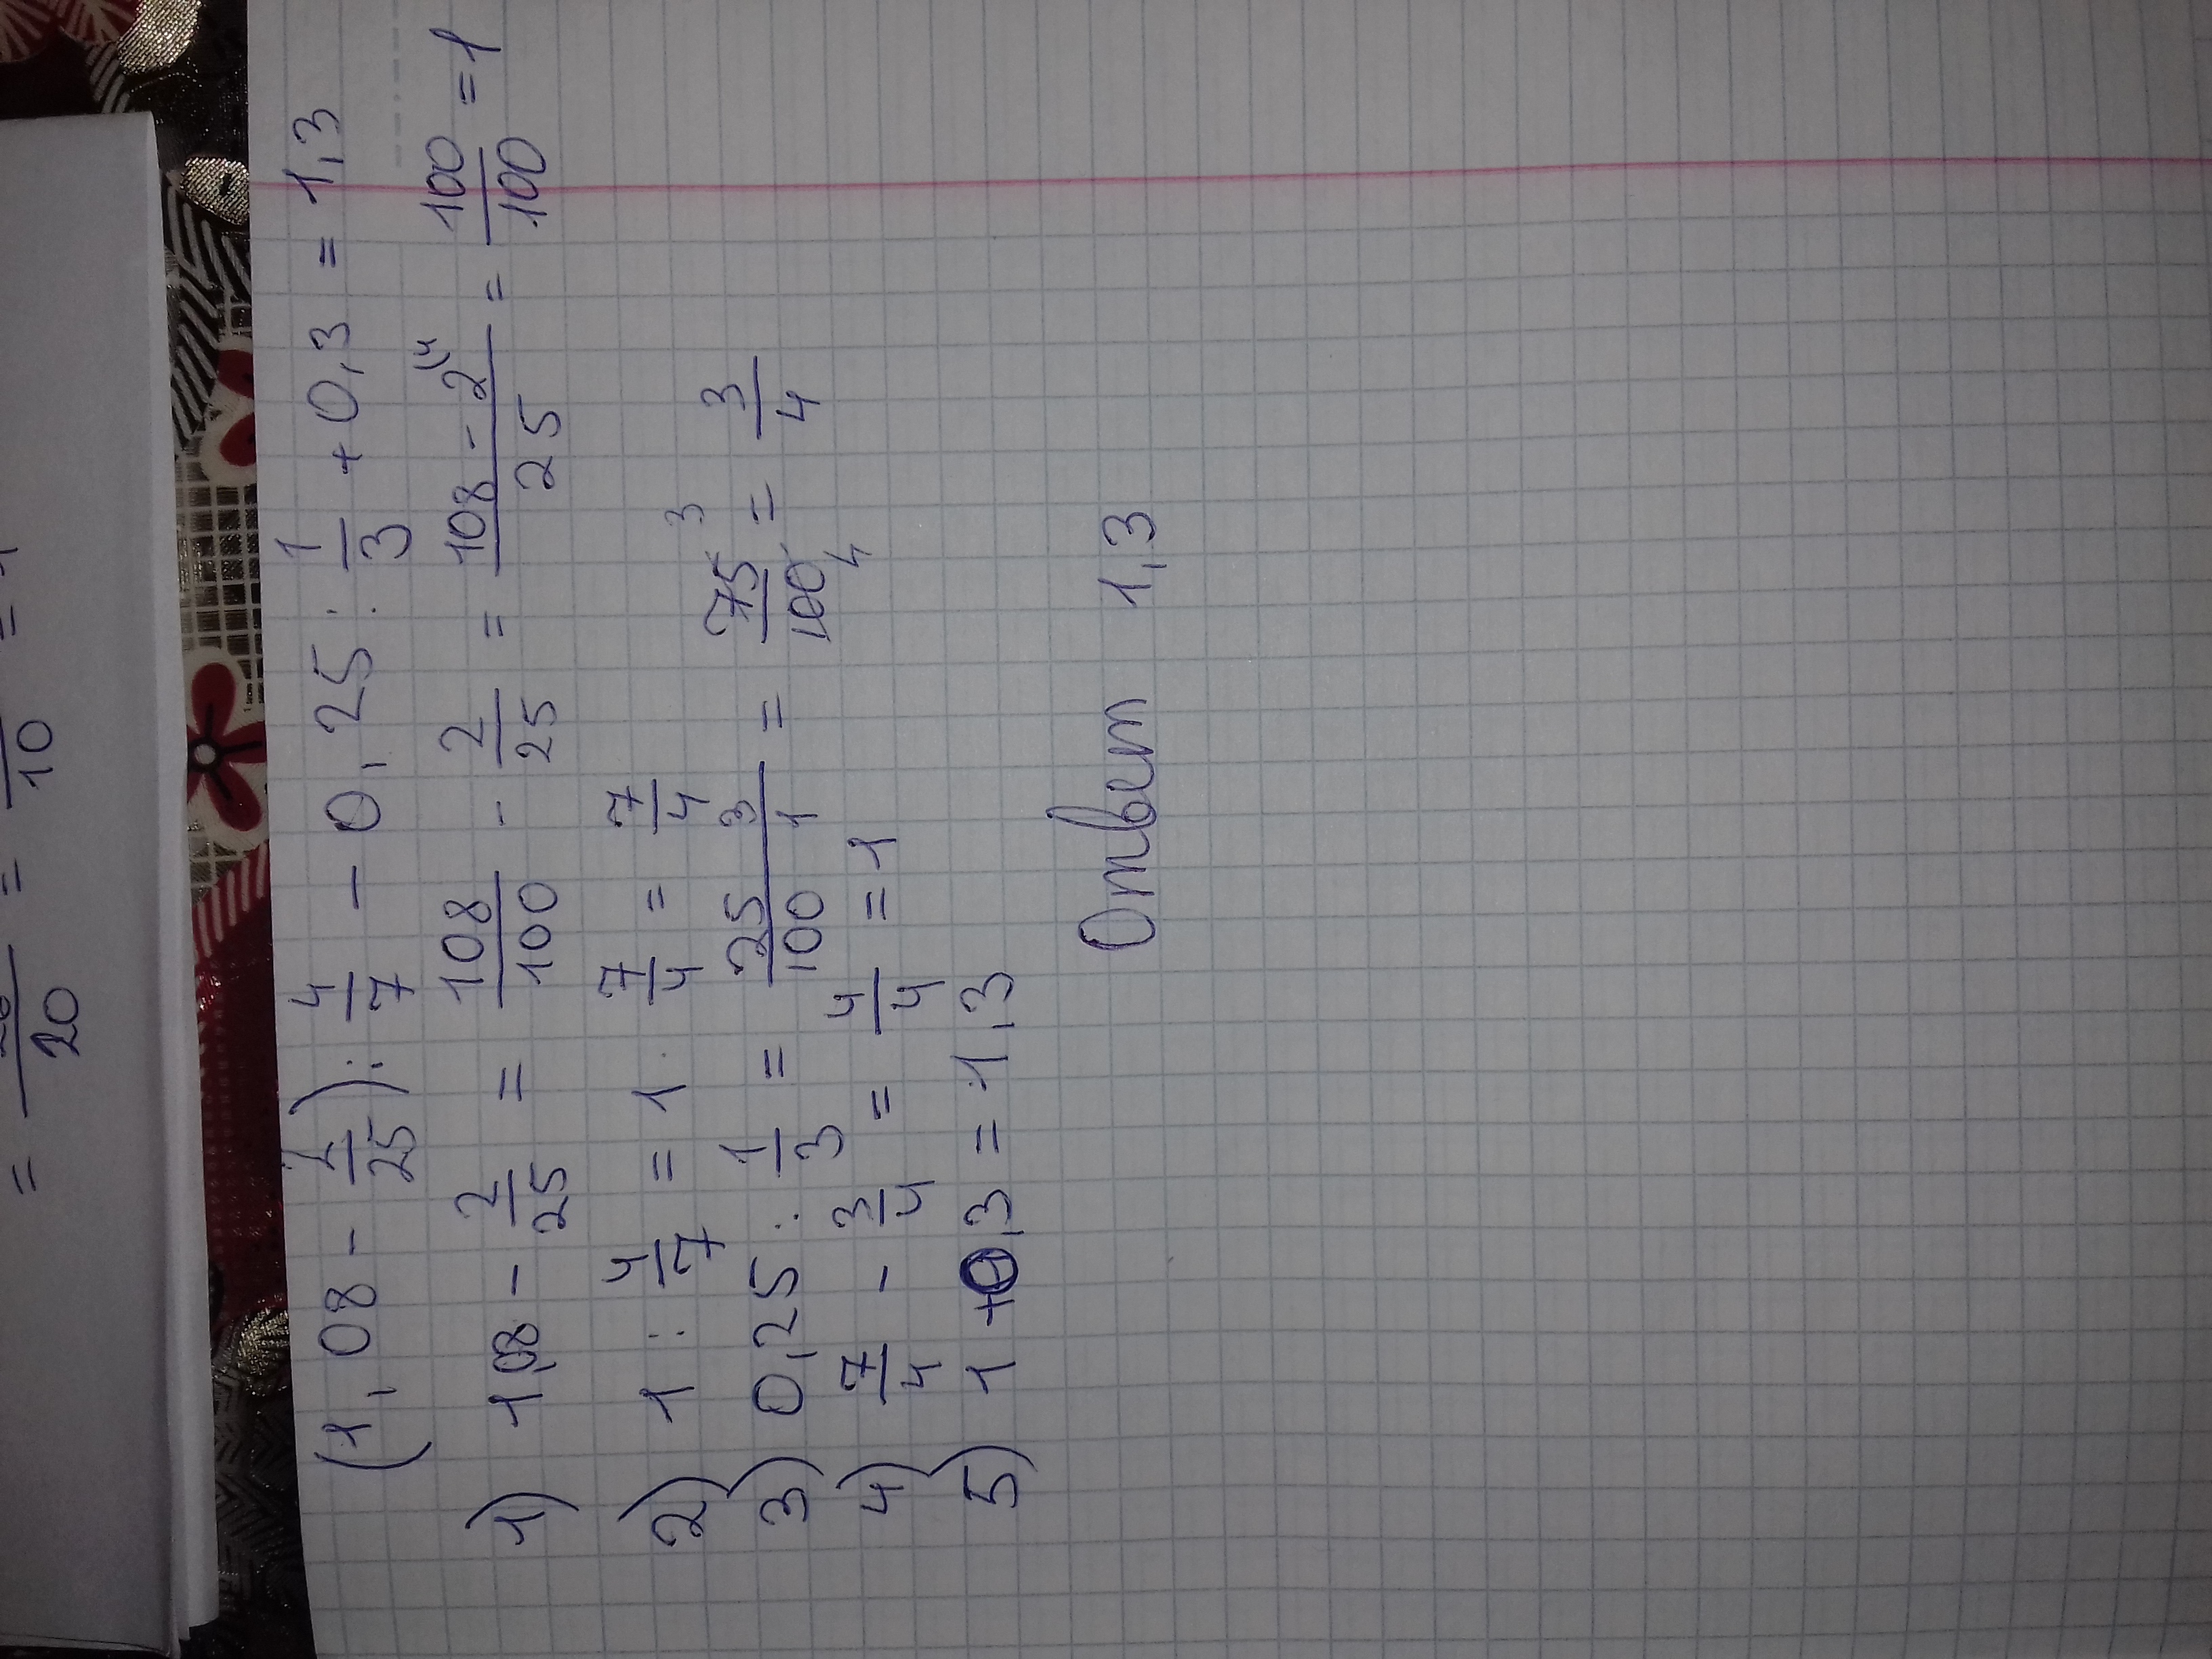 = 20 = 10 = 1
(1,08 - 2/25) : 4/7 - 0,25 : 1/3 + 0,3 = 1,3
1) 1,08 - 2/25 = 108/100 - 2/25 = 108 - 2(4/25 = 100/100 = 1
2) 1 : 4/7 = 1 · 7/4 = 7/4
3) 0,25 : 1/3 = 25 3/100 1 = 75 3/100 4 = 3/4
4) 7/4 - 3/4 = 4/4 = 1
5) 1 + 0,3 = 1,3
Ответ 1,3